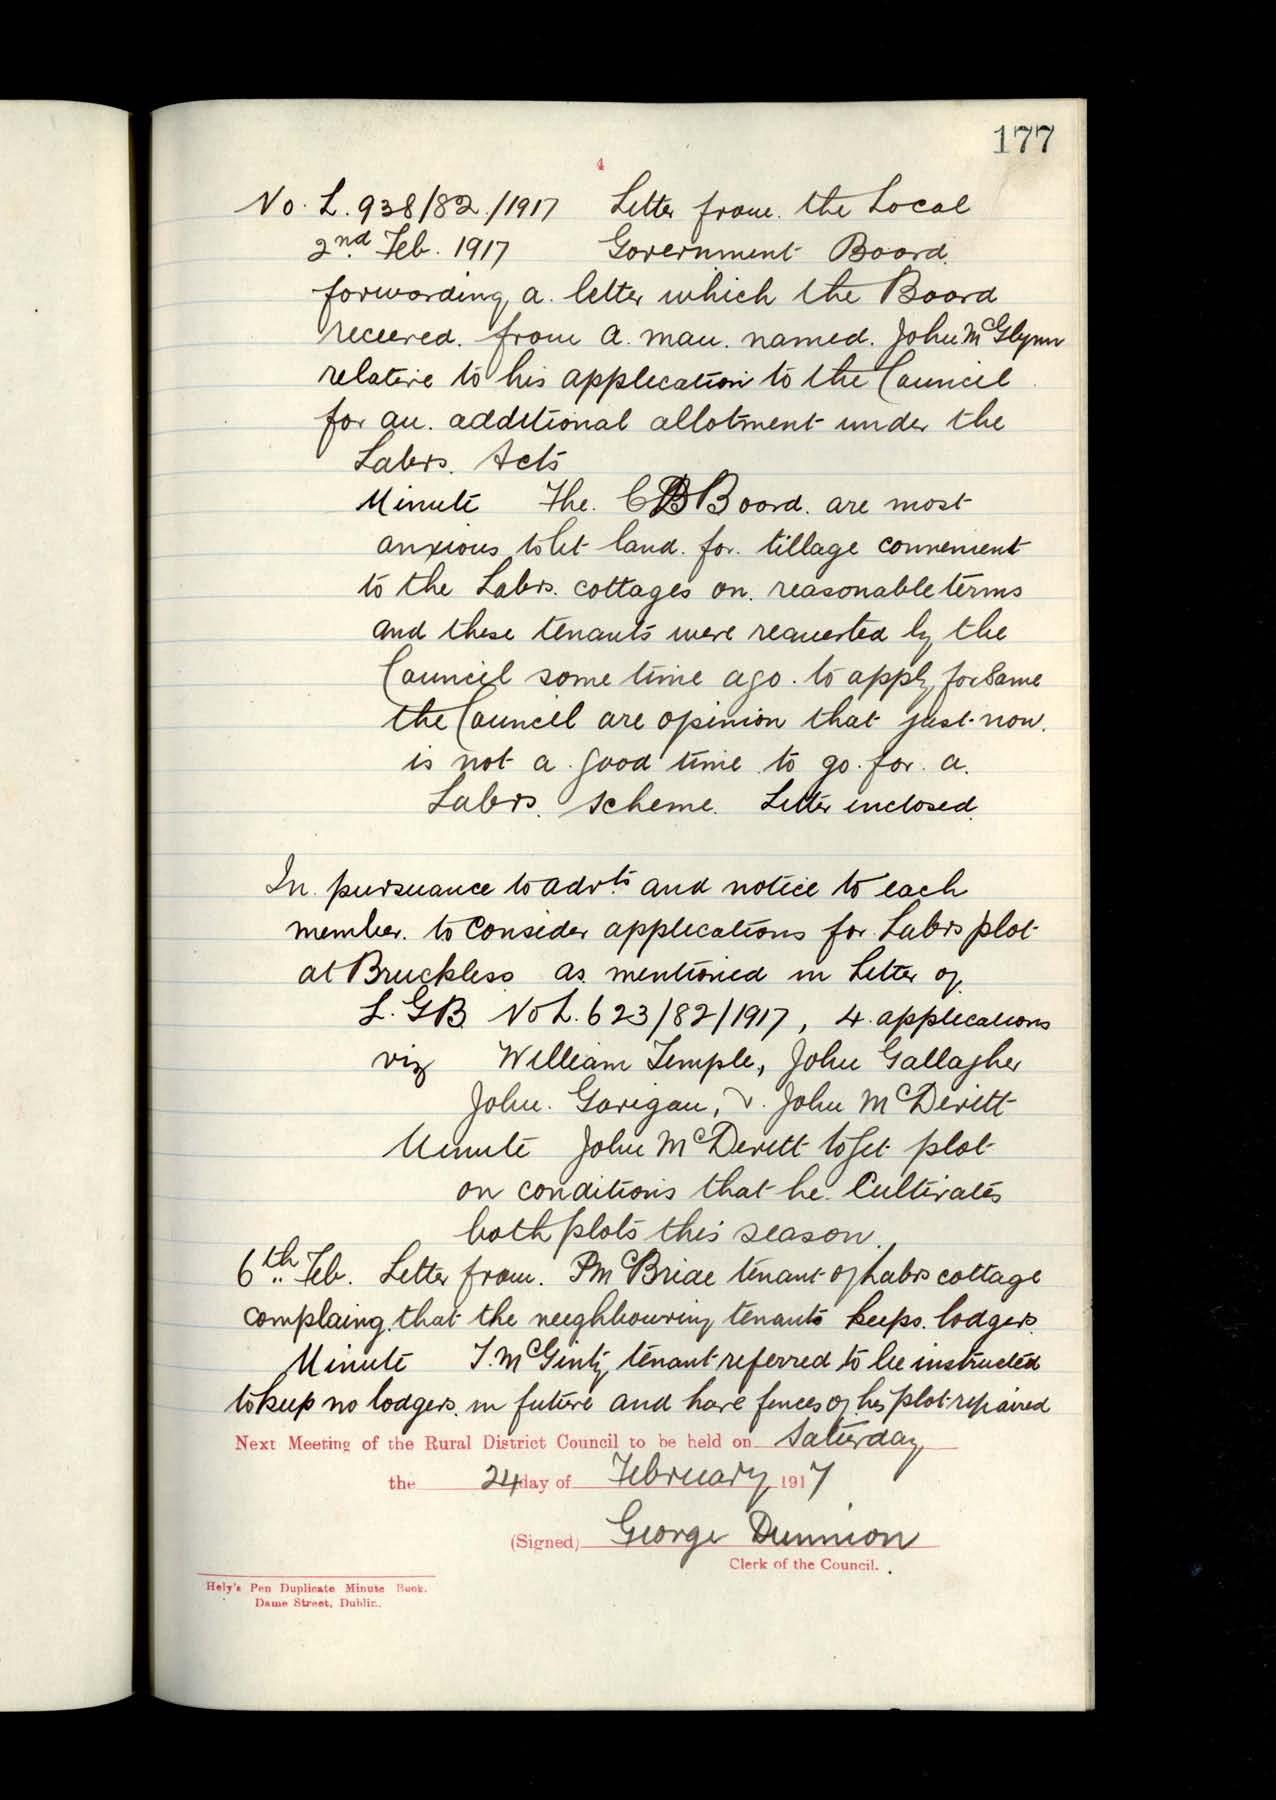 177
4
No. L. 938/82./1917 Letter from. the Local
2nd. Feb. 1917 Government Board.
forwarding a. letter which the Board
received. from a. man. named. John McGlynn
relative to his application to the Council
for an. additional allotment under the
Labrs. Acts
Minute The. C D Board. are most
anxious to let land. for. tillage convenient
to the Labrs. cottages on. reasonable terms
and these tenants were requested by the
Council some time ago. to apply for same
the Council are opinion that just now.
is not a good time to go. for. a.
Labrs. scheme. Letter inclosed.
In. pursuance to advts. and notice to each
member. to consider applications for Labrs plot
at Bruckless as mentioned in Letter of
L. G B No L. 623/82/1917, 4. applications
viz William Temple, John Gallagher
John. Garigan, &. John McDevitt
Minute John McDevitt to get plot
on conditions that he. Cultivates
both plots this season.
6th. Feb. Letter from. P McBride tenant of Labrs cottage
complaing. that the neighbouring tenants keeps. lodgers.
Minute T. McGinty tenant referred to be instructed
to keep no lodgers. in future and have fences of his plot repaired
Next Meeting of the Rural District Council to be held on Saturday
the 24 day of February 1917
(Signed) George Dunnion
Clerk of the Council.
Hely's Pen Duplicate Minute Book.
Dame Street, Dublin.